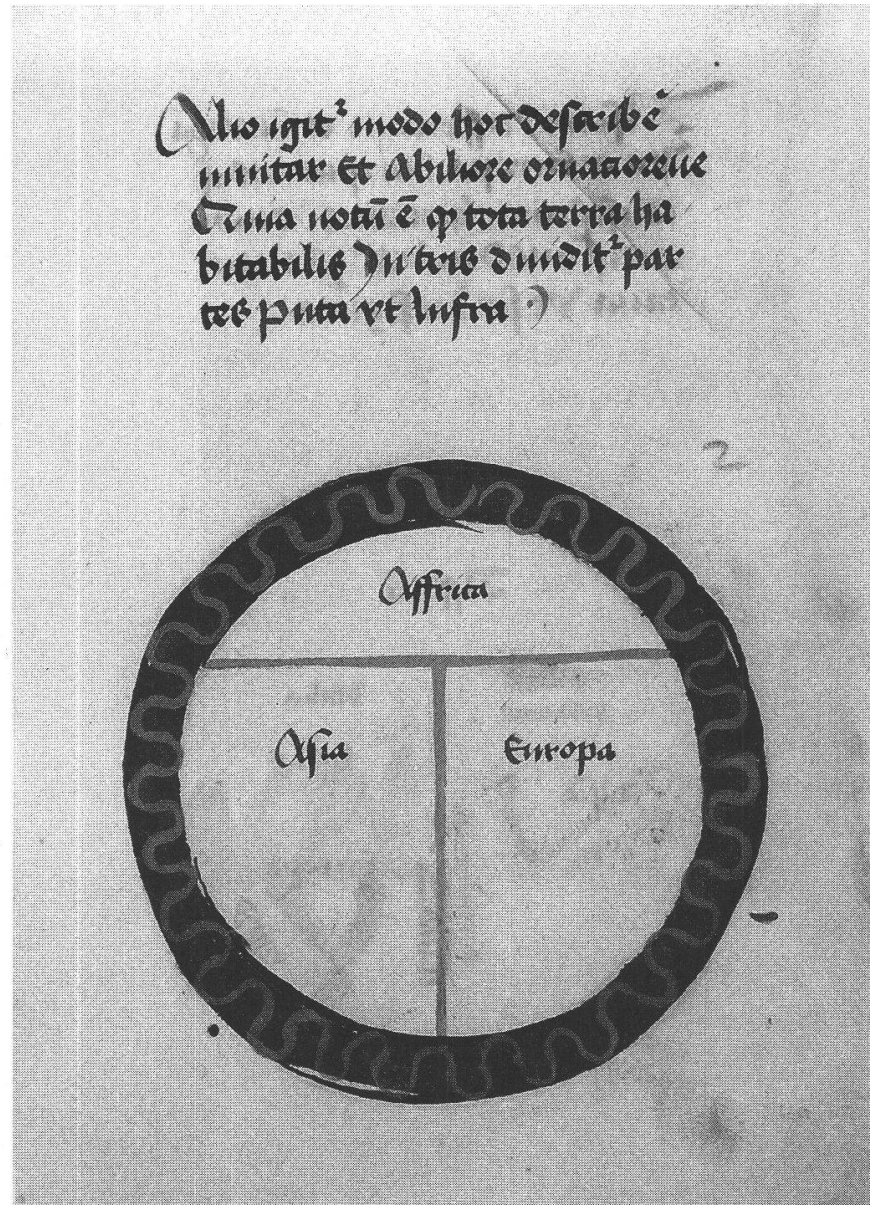 Alio igit² modo hoc describē
mnitar Et Abiliore ornatioreue
Quia notū ē ꝙ tota terra ha
bitabilis In tris diuidit² par
tes puta vt Infra
2
Affrica
Asia
Europa